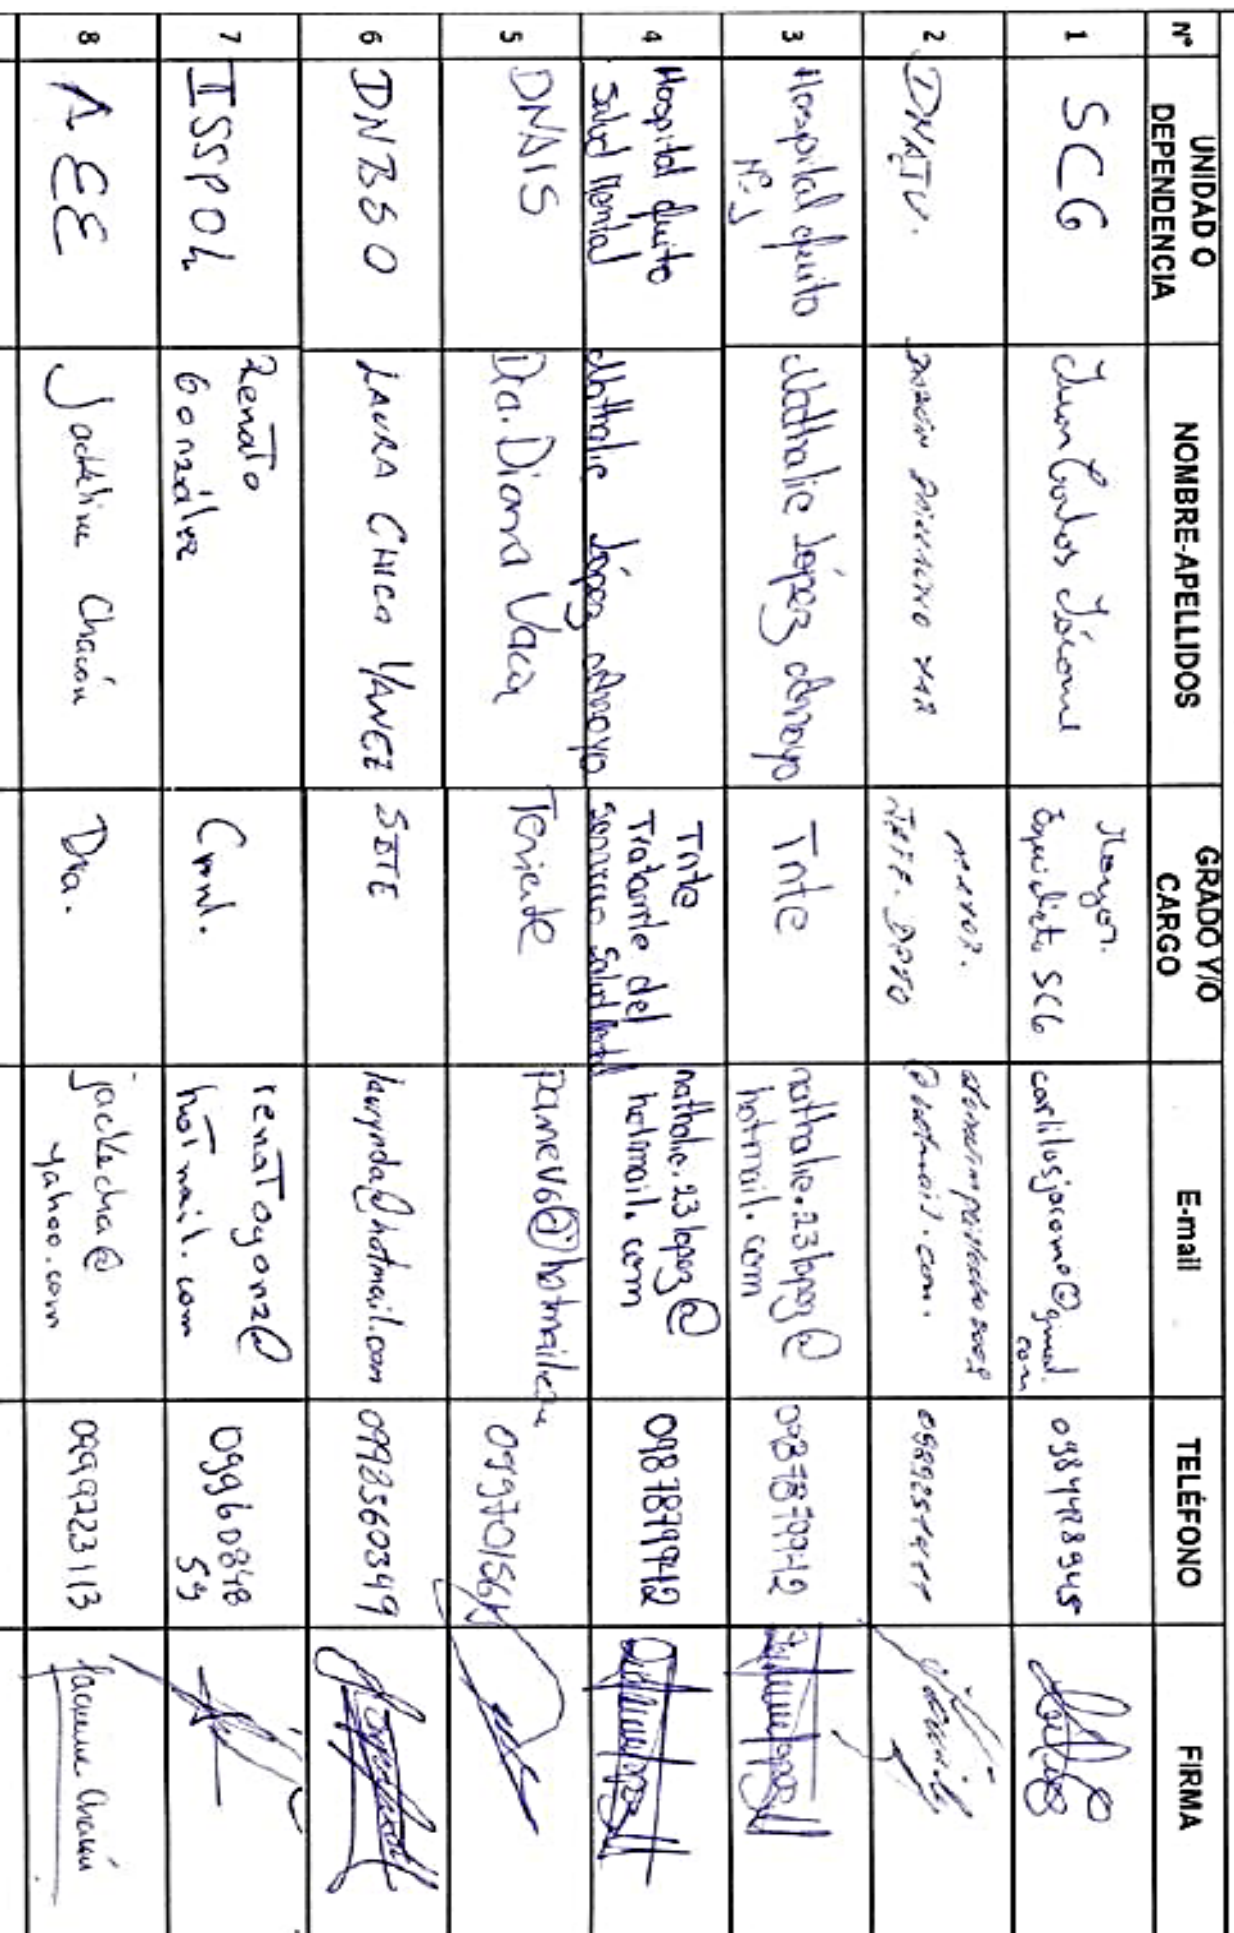 Nº UNIDAD O DEPENDENCIA NOMBRE-APELLIDOS GRADO Y/O CARGO E-mail TELÉFONO FIRMA
1 SCG Juan Carlos Jácome Mayor. SCG carlilosjacome@gmail.com 0984428945
2 MAYOR. JEFE. DPTO @hotmail.com.
3 Hospital Quito Nº-1 Nathalie López Arroyo Tnte nathalie.23lopez@hotmail.com 0987879942
4 Hospital Quito Salud Mental Nathalie López Arroyo Tnte Tratante del Servicio Salud Mental nathalie.23lopez@hotmail.com 0987879942
5 DNAIS Dra. Diana Vaca Teniente panev6@hotmail.com
6 DNBSO LAURA CHICO YANEZ SITE laurynda@hotmail.com 0992560349
7 ISSPOL Renato González Crnl. renatogonz@hotmail.com 0996084859
8 AEE Jackeline Chacón Dra. jackecha@yahoo.com 0999223113 Chacón